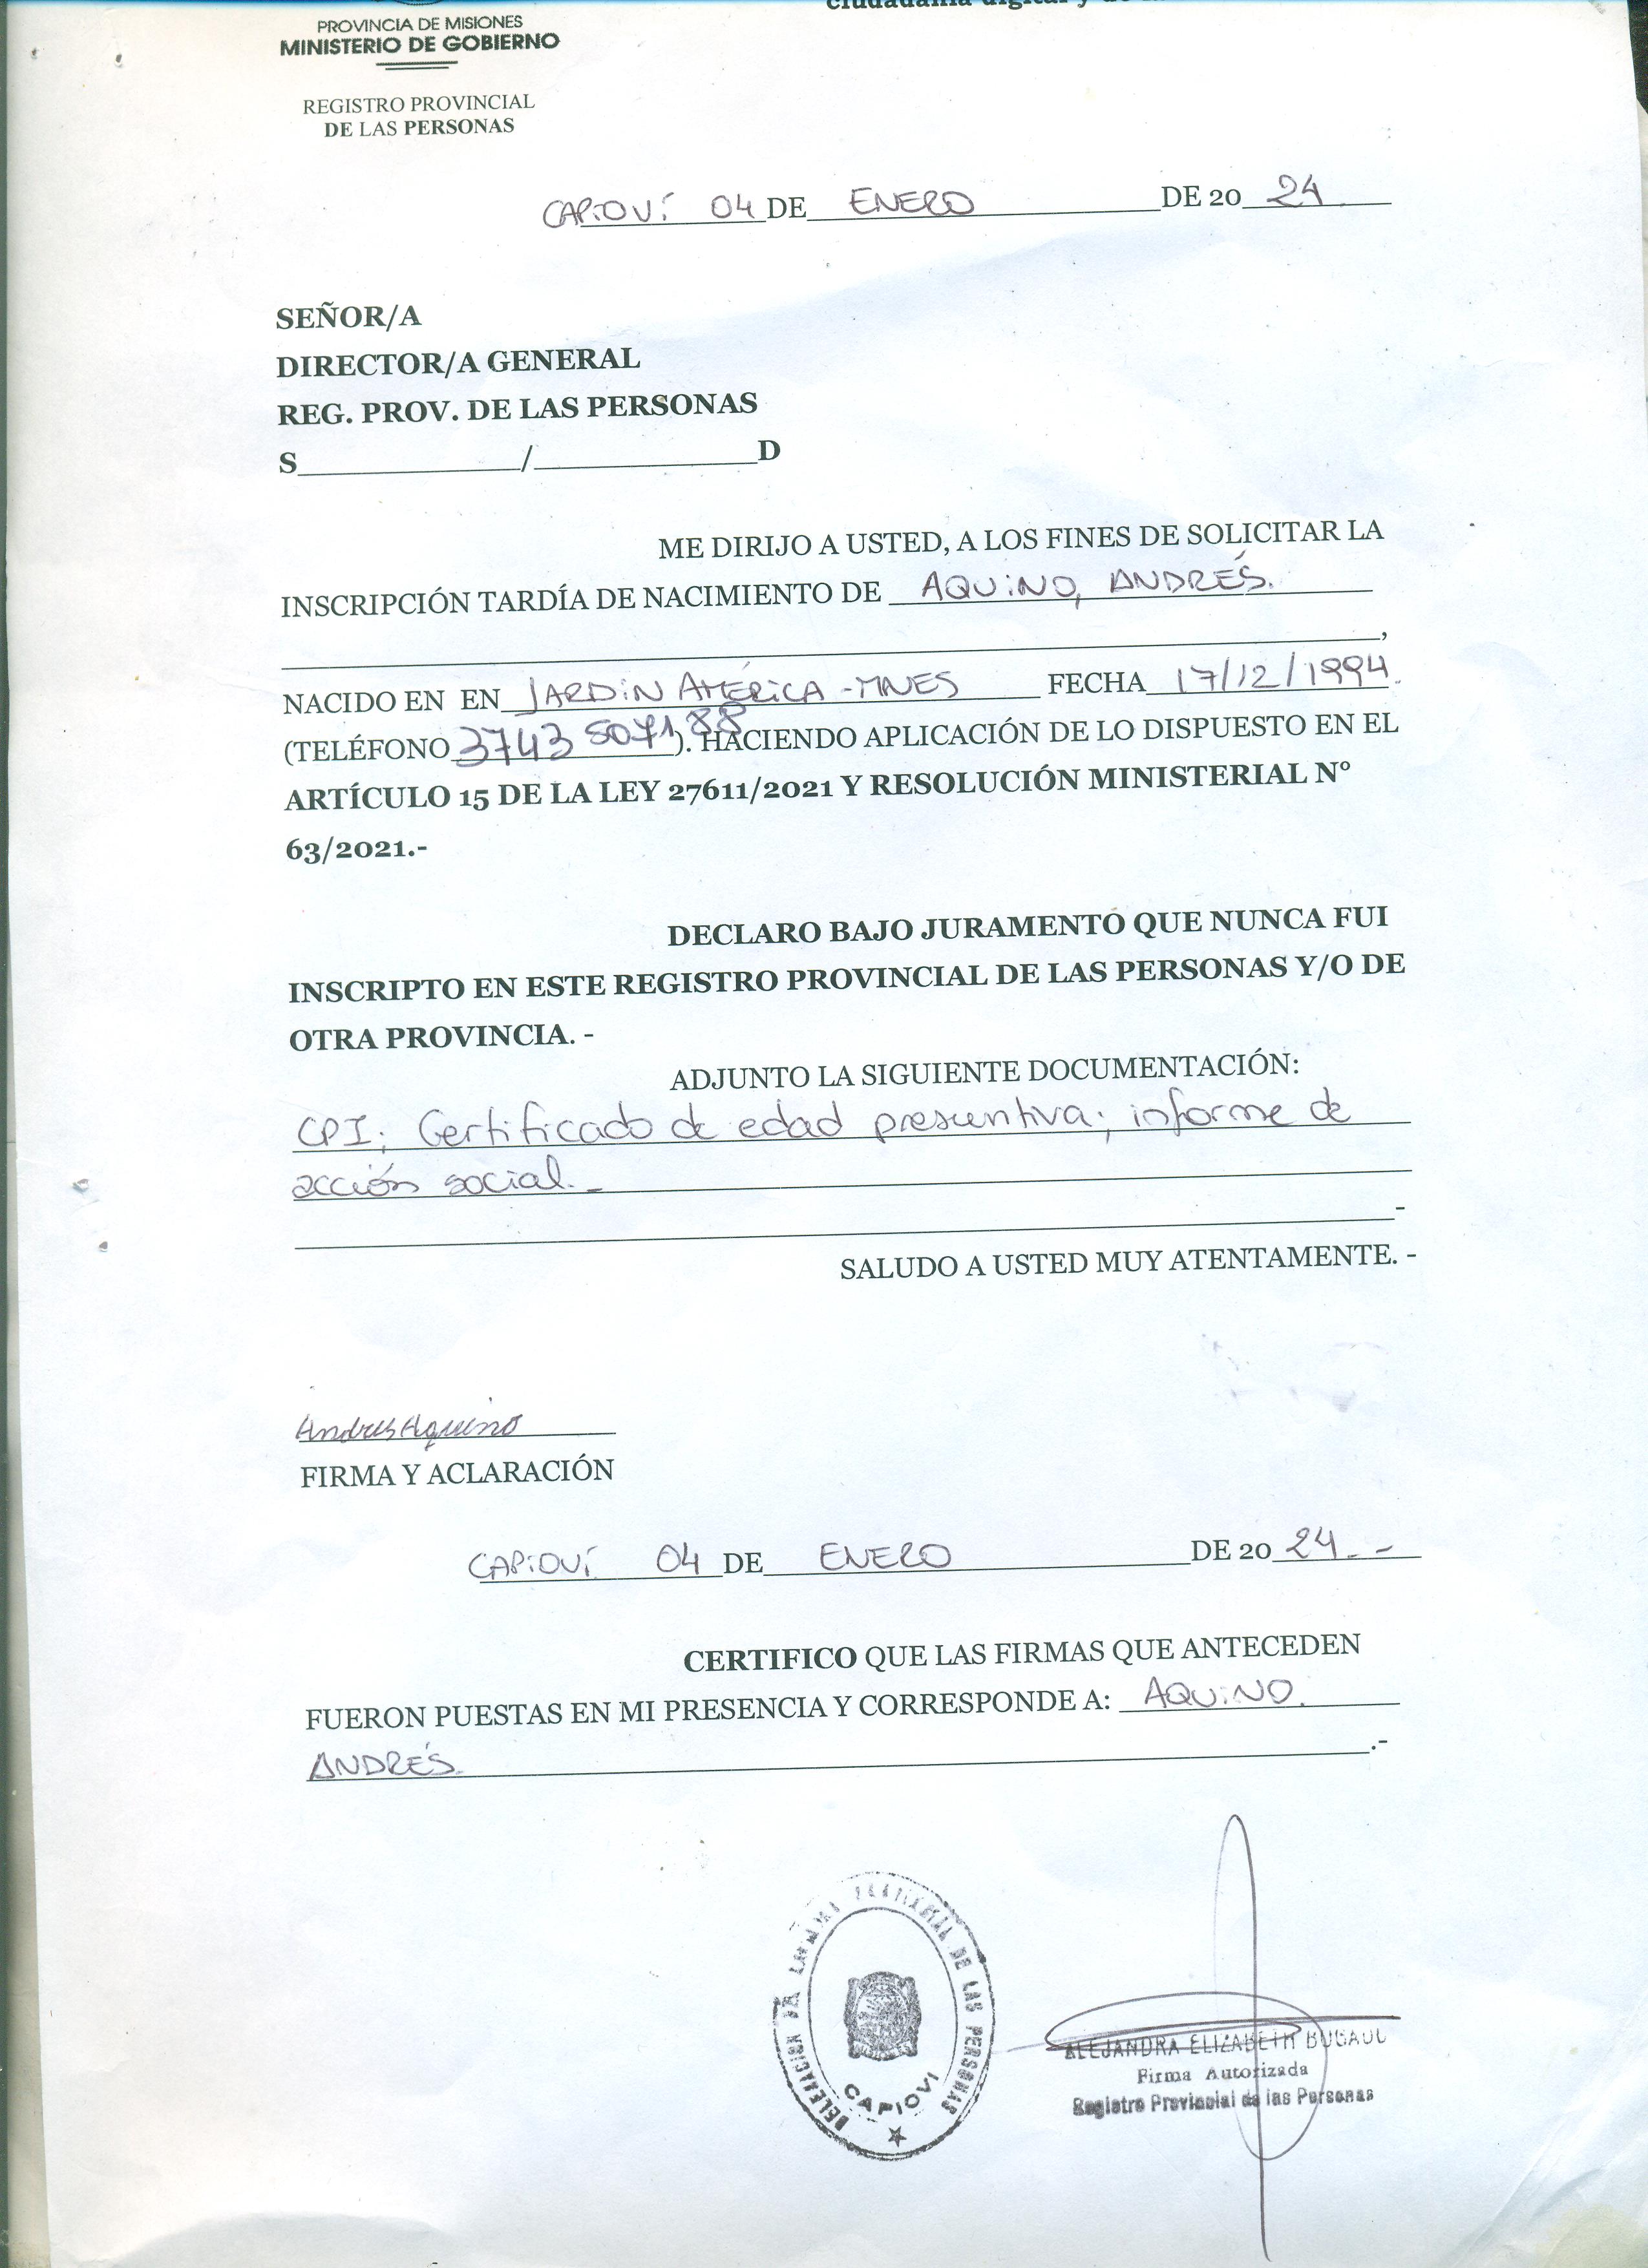 ciudadanía digital y de la
PROVINCIA DE MISIONES
MINISTERIO DE GOBIERNO
REGISTRO PROVINCIAL
DE LAS PERSONAS
CAPIOVÍ 04 DE ENERO DE 20 24
SEÑOR/A
DIRECTOR/A GENERAL
REG. PROV. DE LAS PERSONAS
S____________/____________D
ME DIRIJO A USTED, A LOS FINES DE SOLICITAR LA
INSCRIPCIÓN TARDÍA DE NACIMIENTO DE AQUINO, ANDRÉS.
,
NACIDO EN EN JARDIN AMÉRICA - MNES FECHA 17/12/1994.
(TELÉFONO 3743 507188). HACIENDO APLICACIÓN DE LO DISPUESTO EN EL
ARTÍCULO 15 DE LA LEY 27611/2021 Y RESOLUCIÓN MINISTERIAL N°
63/2021.-
DECLARO BAJO JURAMENTO QUE NUNCA FUI
INSCRIPTO EN ESTE REGISTRO PROVINCIAL DE LAS PERSONAS Y/O DE
OTRA PROVINCIA. -
ADJUNTO LA SIGUIENTE DOCUMENTACIÓN:
CPI; Certificado de edad presuntiva; informe de
acción social. -
-
SALUDO A USTED MUY ATENTAMENTE. -
Andres Aquino
FIRMA Y ACLARACIÓN
CAPIOVÍ 04 DE ENERO DE 20 24. -
CERTIFICO QUE LAS FIRMAS QUE ANTECEDEN
FUERON PUESTAS EN MI PRESENCIA Y CORRESPONDE A: AQUINO.
ANDRÉS. .-
DE LAS PERSONAS
CAPIOVI
ALEJANDRA ELIZABETH
Firma Autorizada
Registro Provincial de las Personas